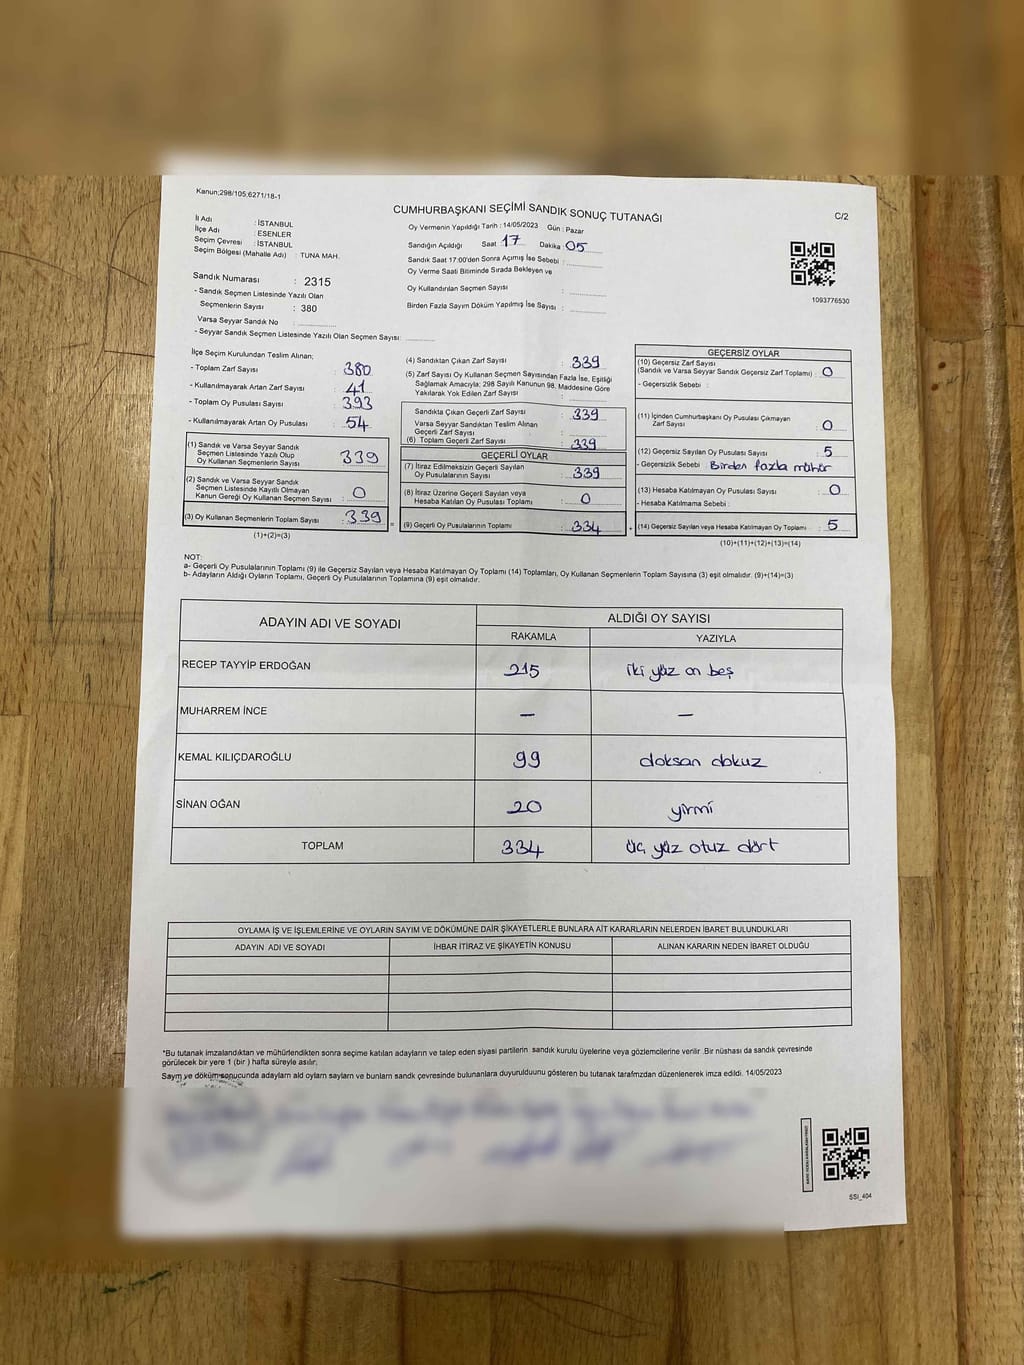 Kanun;298/105;6271/18-1
CUMHURBAŞKANI SEÇİMİ SANDIK SONUÇ TUTANAĞI
C/2
İl Adı : İSTANBUL
İlçe Adı : ESENLER
Seçim Çevresi : İSTANBUL
Seçim Bölgesi (Mahalle Adı) : TUNA MAH.
Sandık Numarası : 2315
- Sandık Seçmen Listesinde Yazılı Olan
Seçmenlerin Sayısı : 380
Varsa Seyyar Sandık No :
- Seyyar Sandık Seçmen Listesinde Yazılı Olan Seçmen Sayısı:
Oy Vermenin Yapıldığı Tarih : 14/05/2023 Gün : Pazar
Sandığın Açıldığı Saat 17 Dakika : 05
Sandık Saat 17:00'den Sonra Açımış İse Sebebi :
Oy Verme Saati Bitiminde Sırada Bekleyen ve
Oy Kullandırılan Seçmen Sayısı :
Birden Fazla Sayım Döküm Yapılmış İse Sayısı :
1093776530
İlçe Seçim Kurulundan Teslim Alınan;
- Toplam Zarf Sayısı : 380
- Kullanılmayarak Artan Zarf Sayısı : 41
- Toplam Oy Pusulası Sayısı : 393
- Kullanılmayarak Artan Oy Pusulası : 54
(1) Sandık ve Varsa Seyyar Sandık
Seçmen Listesinde Yazılı Olup
Oy Kullanan Seçmenlerin Sayısı : 339
(2) Sandık ve Varsa Seyyar Sandık
Seçmen Listesinde Kayıtlı Olmayan
Kanun Gereği Oy Kullanan Seçmen Sayısı : 0
(3) Oy Kullanan Seçmenlerin Toplam Sayısı : 339 =
(1)+(2)=(3)
(4) Sandıktan Çıkan Zarf Sayısı : 339
(5) Zarf Sayısı Oy Kullanan Seçmen Sayısından Fazla İse, Eşitliği
Sağlamak Amacıyla; 298 Sayılı Kanunun 98. Maddesine Göre
Yakılarak Yok Edilen Zarf Sayısı :
Sandıkta Çıkan Geçerli Zarf Sayısı : 339
Varsa Seyyar Sandıktan Teslim Alınan
Geçerli Zarf Sayısı :
(6) Toplam Geçerli Zarf Sayısı : 339
GEÇERLİ OYLAR
(7) İtiraz Edilmeksizin Geçerli Sayılan
Oy Pusulalarının Sayısı : 339
(8) İtiraz Üzerine Geçerli Sayılan veya
Hesaba Katılan Oy Pusulası Toplamı : 0
(9) Geçerli Oy Pusulalarının Toplamı : 334 +
GEÇERSİZ OYLAR
(10) Geçersiz Zarf Sayısı
(Sandık ve Varsa Seyyar Sandık Geçersiz Zarf Toplamı) : 0
- Geçersizlik Sebebi :
(11) İçinden Cumhurbaşkanı Oy Pusulası Çıkmayan
Zarf Sayısı : 0
(12) Geçersiz Sayılan Oy Pusulası Sayısı : 5
- Geçersizlik Sebebi : Birden fazla mühür
(13) Hesaba Katılmayan Oy Pusulası Sayısı : 0
- Hesaba Katılmama Sebebi :
(14) Geçersiz Sayılan veya Hesaba Katılmayan Oy Toplamı : 5
(10)+(11)+(12)+(13)=(14)
NOT:
a- Geçerli Oy Pusulalarının Toplamı (9) ile Geçersiz Sayılan veya Hesaba Katılmayan Oy Toplamı (14) Toplamları, Oy Kullanan Seçmenlerin Toplam Sayısına (3) eşit olmalıdır. (9)+(14)=(3)
b- Adayların Aldığı Oyların Toplamı, Geçerli Oy Pusulalarının Toplamına (9) eşit olmalıdır.
ADAYIN ADI VE SOYADI
ALDIĞI OY SAYISI
RAKAMLA YAZIYLA
RECEP TAYYİP ERDOĞAN 215 iki yüz on beş
MUHARREM İNCE – –
KEMAL KILIÇDAROĞLU 99 doksan dokuz
SİNAN OĞAN 20 yirmi
TOPLAM 334 üç yüz otuz dört
OYLAMA İŞ VE İŞLEMLERİNE VE OYLARIN SAYIM VE DÖKÜMÜNE DAİR ŞİKAYETLERLE BUNLARA AİT KARARLARIN NELERDEN İBARET BULUNDUKLARI
ADAYIN ADI VE SOYADI İHBAR İTİRAZ VE ŞİKAYETİN KONUSU ALINAN KARARIN NEDEN İBARET OLDUĞU
*Bu tutanak imzalandıktan ve mühürlendikten sonra seçime katılan adayların ve talep eden siyasi partilerin sandık kurulu üyelerine veya gözlemcilerine verilir .Bir nüshası da sandık çevresinde
görülecek bir yere 1 (bir ) hafta süreyle asılır.
Sayım ve döküm sonucunda adayların aldı oyların sayıları ve bunların sandk çevresinde bulunanlara duyurulduunu gösteren bu tutanak tarafmzdan düzenlenerek imza edildi. 14/05/2023
SSİ_404